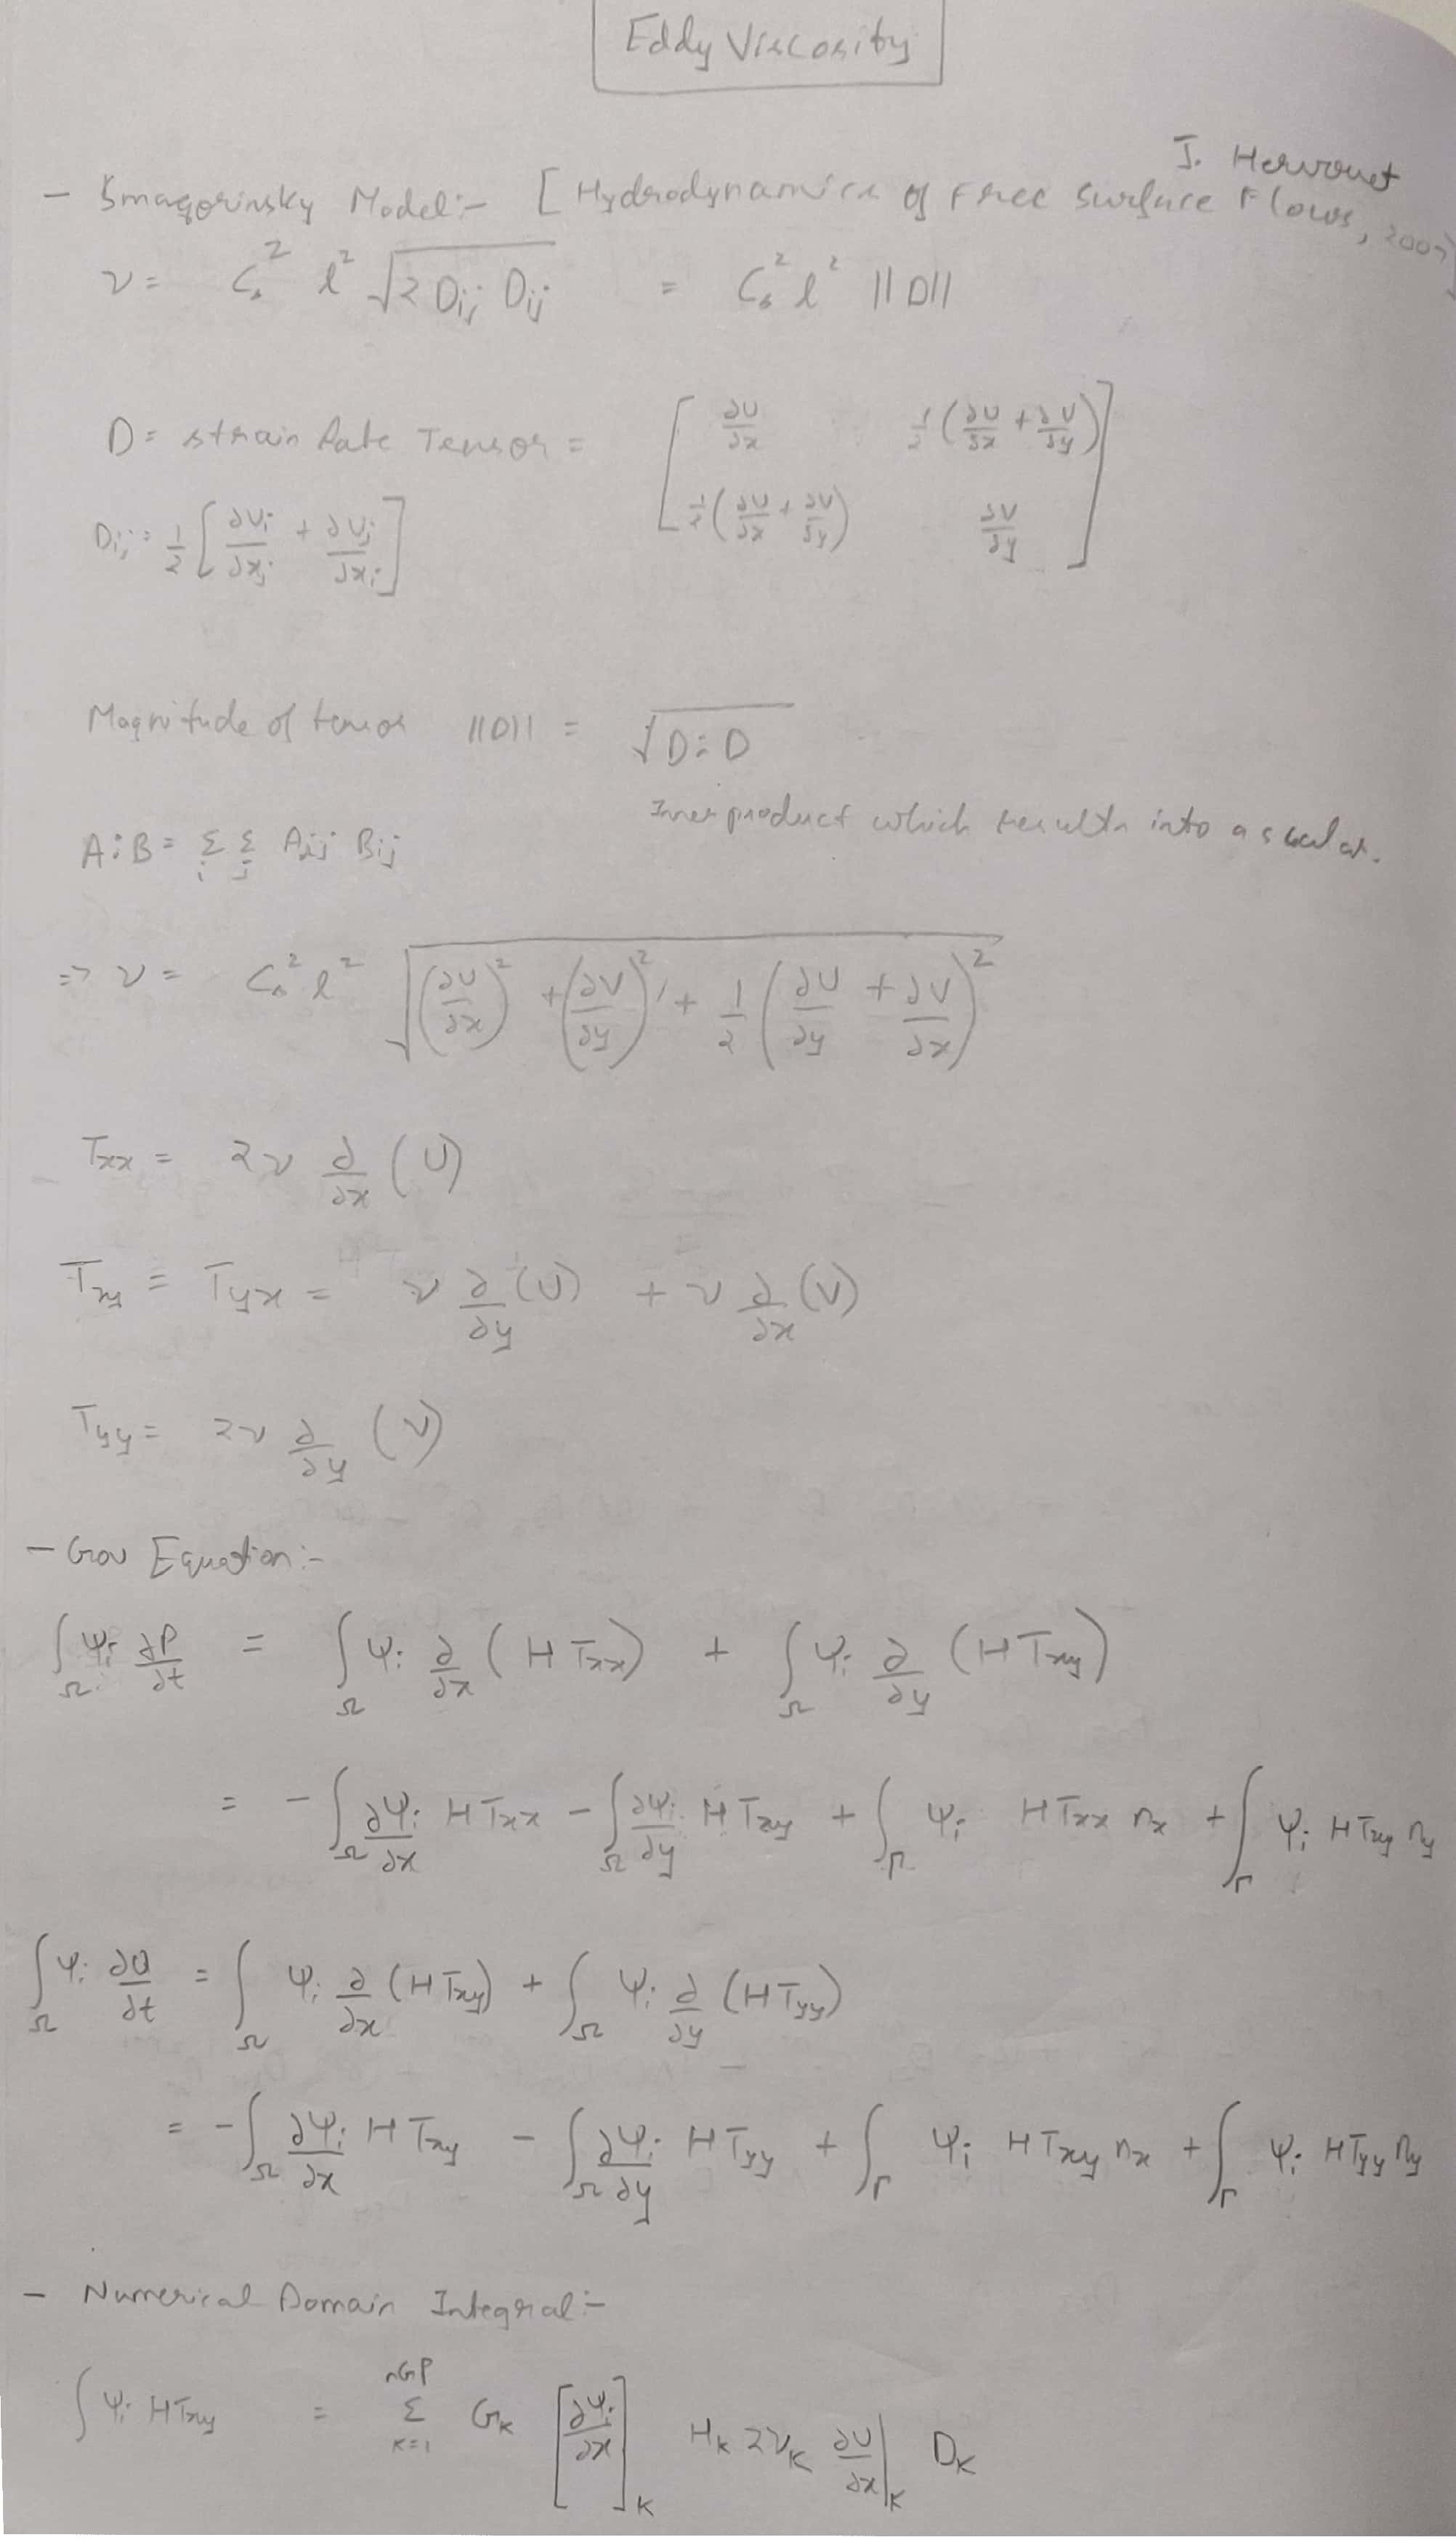 Eddy Viscosity
J. Hervouet
- Smagorinsky Model:- [Hydrodynamics of Free Surface Flows, 2007]
ν = Cs² l² √(2 Dij Dij) = Cs² l² ||D||
D = strain Rate Tensor = [ ∂U/∂x  1/2(∂U/∂x + ∂V/∂y) ]
[ 1/2(∂U/∂x + ∂V/∂y)  ∂V/∂y ]
Dij = 1/2 [∂Ui/∂xj + ∂Uj/∂xi]
Magnitude of tensor ||D|| = √(D:D)
Inner product which results into a scalar.
A:B = Σi Σj Aij Bij
=> ν = Cs² l² √((∂U/∂x)² + (∂V/∂y)² + 1/2 (∂U/∂y + ∂V/∂x)²)
Txx = 2ν ∂/∂x (U)
Txy = Tyx = ν ∂/∂y (U) + ν ∂/∂x (V)
Tyy = 2ν ∂/∂y (V)
- Gov Equation:-
∫Ω Ψi ∂P/∂t = ∫Ω Ψi ∂/∂x (H Txx) + ∫Ω Ψi ∂/∂y (H Txy)
= - ∫Ω ∂Ψi/∂x H Txx - ∫Ω ∂Ψi/∂y H Txy + ∫Γ Ψi H Txx nx + ∫Γ Ψi H Txy ny
∫Ω Ψi ∂Q/∂t = ∫Ω Ψi ∂/∂x (H Txy) + ∫Ω Ψi ∂/∂y (H Tyy)
= - ∫Ω ∂Ψi/∂x H Txy - ∫Ω ∂Ψi/∂y H Tyy + ∫Γ Ψi H Txy nx + ∫Γ Ψi H Tyy ny
- Numerical Domain Integral:-
∫ Ψi H Txy = Σ(K=1 to nGP) GK [∂Ψi/∂x]K HK 2νK ∂U/∂x|K DK